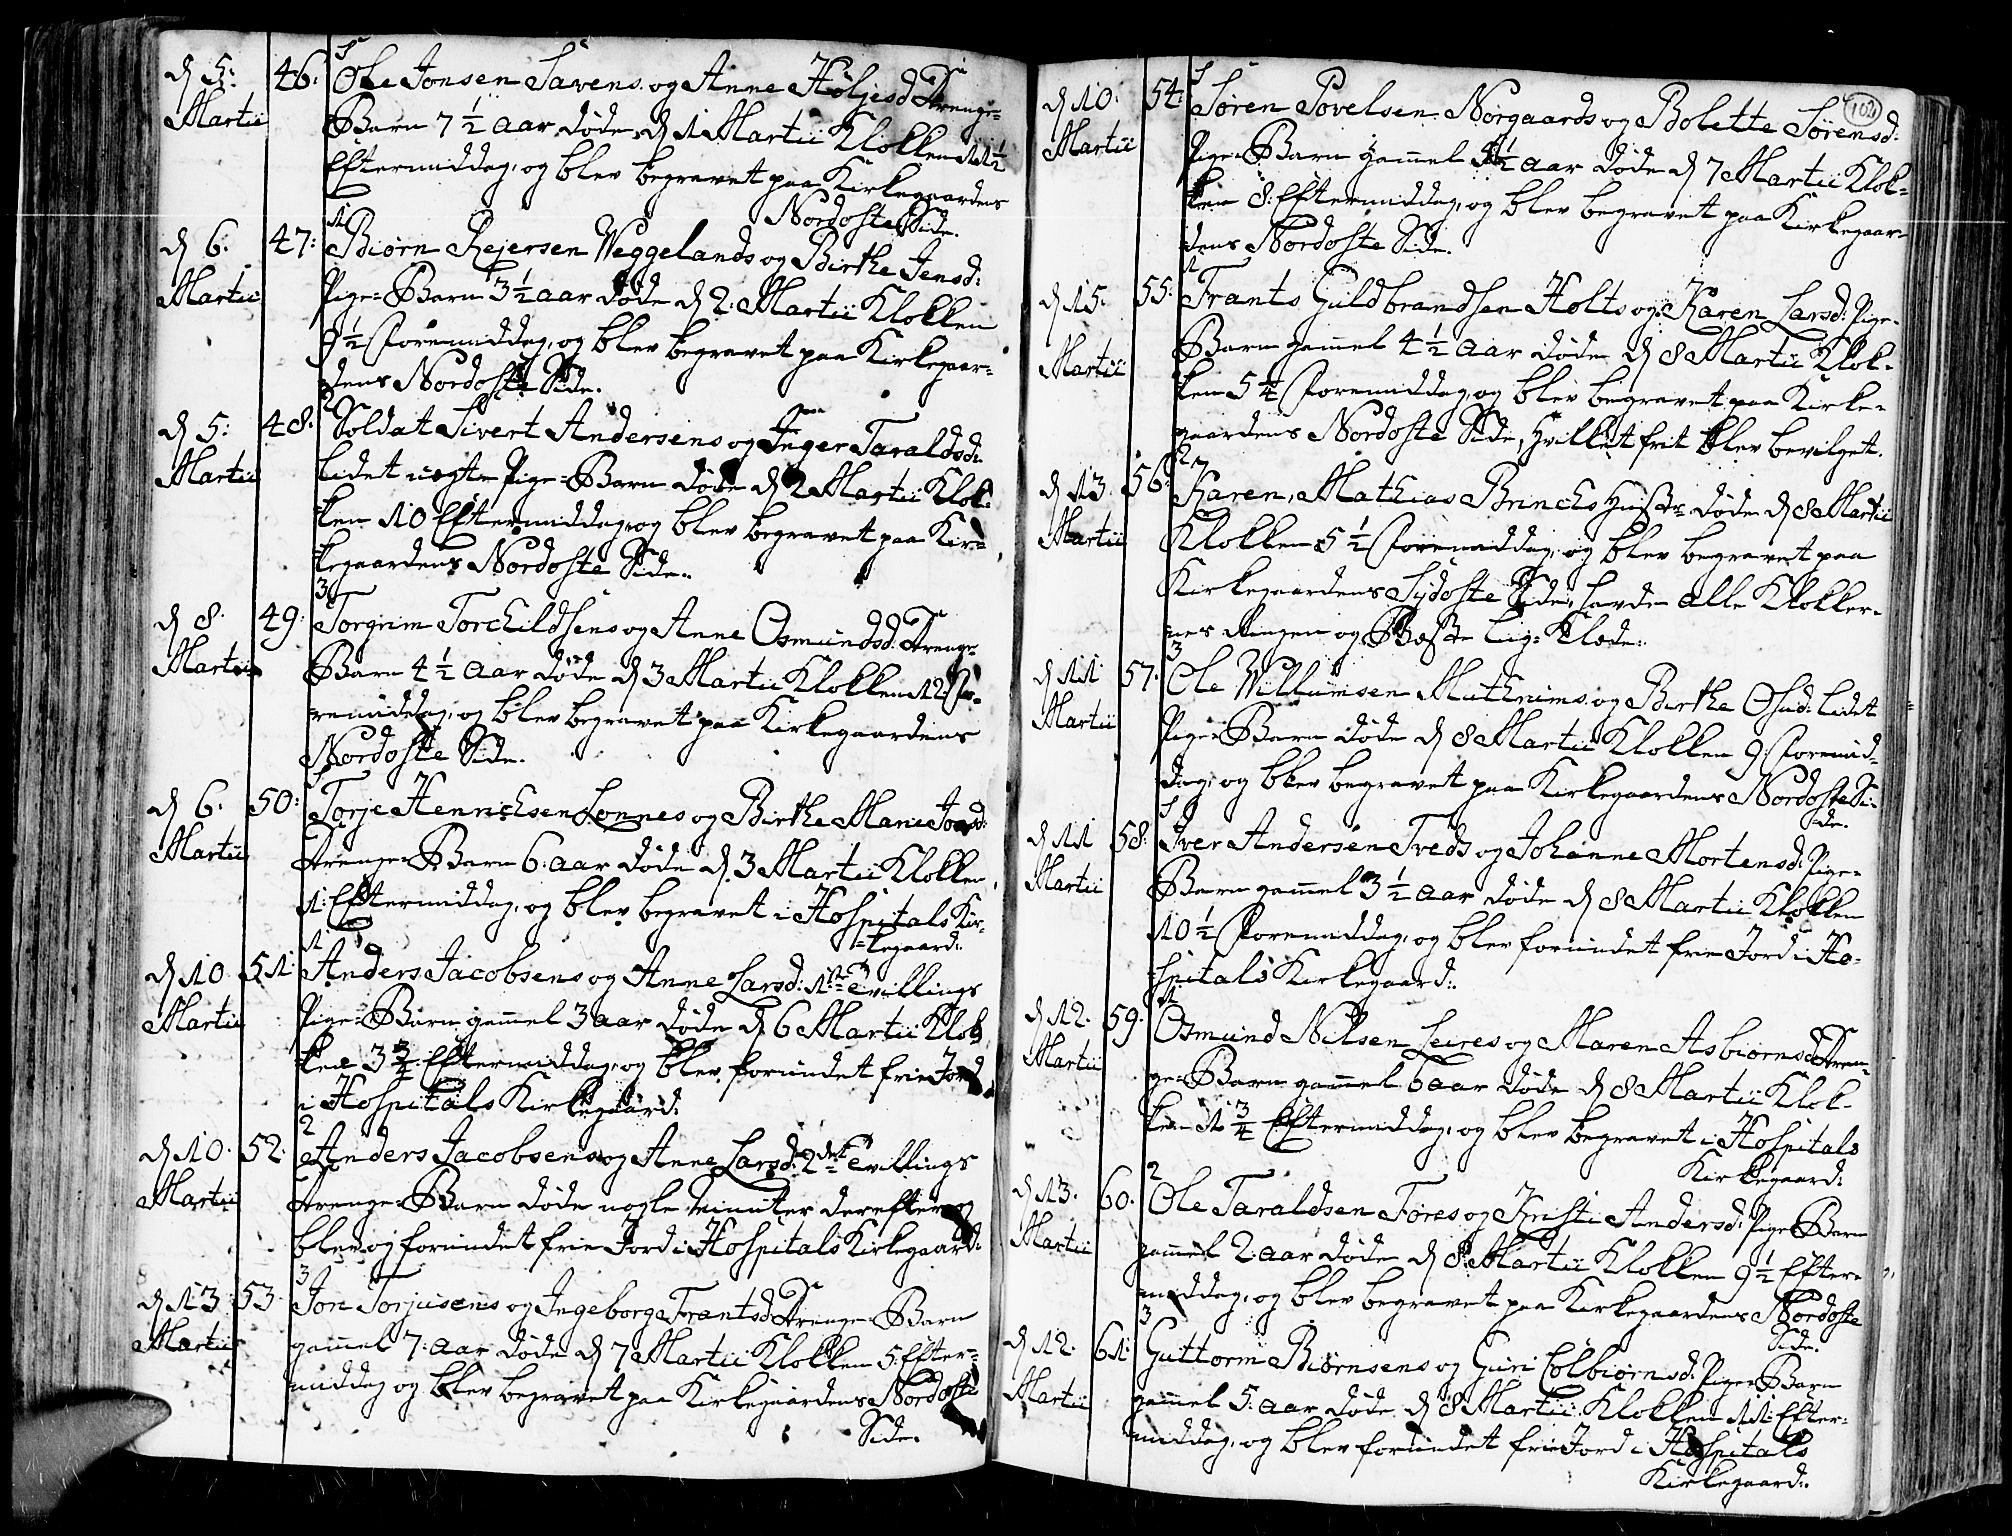 d 5: 46: Ole Jonsen Savens og Anne Holjesd Drenge=
Martii Barn 7 1/2 aar døde d 1 Martii Klokken 11 1/2
Eftermiddag, og blev begravet paa Kirkegaardens
Nordoste Side.
1
d 6. 47: Biørn Rejersen Weggelands og Birthe Jensd:
Martii Pige=Barn 3 1/2 aar døde d 2. Martii Klokken
9 1/2 Formiddag, og blev begravet paa Kirkegaar=
dens Nordoste Side.
2
d 5: 48: Soldat Sivert Andersens og Inger Taraldsd:
Martii lidet uægte Pige=Barn døde d 2 Martii Klok=
ken 10 Eftermiddag, og blev begravet paa Kir=
kegaardens Nordoste Side.
3
d 8. 49. Torgrim Torchildsens og Anne Osmundsd. Drenge=
Martii Barn 4 1/2 aar døde d 3 Martii Klokken 12 Fo=
remiddag, og blev begravet paa Kirkegaardens
Nordoste Side.
d 6. 50: Torje Henrichsen Lonnes og Birthe Marie
Martii Drenge=Barn 6. aar døde d. 3 Martii Klokken
1. Eftermiddag, og blev begravet i Hospitals Kir=
=kegaard:
1
d 10 51: Anders Jacobsens og Anne Larsd: 1ste Tvillings
Martii Pige=Barn gammel 3 aar døde d 6 Martii Klok
ken 3 3/4 Eftermiddag, og blev forundet frie Jord
i Hospitals Kirkegaard:
2
d 10. 52: Anders Jacobsens og Anne Larsd: 2den Tvillings
Martii Drenge=Barn døde nogle Minuter derefter og
blev og forundet frie Jord i Hospitals Kirkegaard:
3
d 13 53 Jon Torjusens og Ingeborg Frantsd Drenge=Barn
Martii gammel 7. aar døde d 7 Martii Klokken 5. Efter=
middag og blev begravet paa Kirkegaardens Nordoste
Side.
102
d 10. 54: Søren Povelsen Norgaards og Bolette Sørensd:
Martii Pige=Barn gammel 1/2 aar døde d 7 Martii Klok=
ken 8. Eftermiddag, og blev begravet paa Kirkegaar=
dens Nordoste Side.
1
d 15. 55: Frants Guldbrandsen Holts og Karen Larsd: Pige=
Martii Barn gammel 4 1/2 aar døde d 8 Martii Klok=
ken 5 1/4 Formiddag, og blev begravet paa Kirke=
gaardens Nordoste Side, hvilket frit blev bevilget.
2
d 13 56: Karen, Mathias Brinchs Hustr døde d 8 Martii
Martii Klokken 5 1/2 Formiddag, og blev begravet paa
Kirkegaardens Sydoste Side, havde alle Klokker=
nes Ringen og Beste Lig=Klæde:
3
d 11 57. Ole Willumsen og Birthe lidet
Martii Pige=Barn døde d 8 Martii Klokken 9. Formid=
dag, og blev begravet paa Kirkegaardens Nordoste Si=
=de.
d 11 58: Iver Andersen Tveds og Johanne Mortensd: Pige=
Martii Barn gammel 3 1/2 aar døde d 8 Martii Klokken
10 1/2 Formiddag, og blev forundet frie Jord i Ho=
=spitals Kirkegaard:
1
d 12. 59. Osmund Nilsen Leires og Maren Asbiørnsd: Dren=
Martii ge=Barn gammel 6 aar døde d 8 Martii Klok=
ken 1 3/4 Eftermiddag, og blev begravet i Hospitals
Kirkegaard:
2
d 13. 60. Ole Taraldsen Føres og Kristi Andersd: Pige=Barn
Martii gammel 2. aar døde d 8. Martii Klokken 9 1/2 Efter=
middag, og blev begravet paa Kirkegaardens Nordoste
Side.
3
d 12. 61: Guttorm Biørnsens og Guri Colbiørnsd: Pige=Barn
Martii gammel 5. aar døde d 8 Martii Klokken 11. Efter=
middag, og blev forundet frie Jord i Hospitals
Kirkegaard: